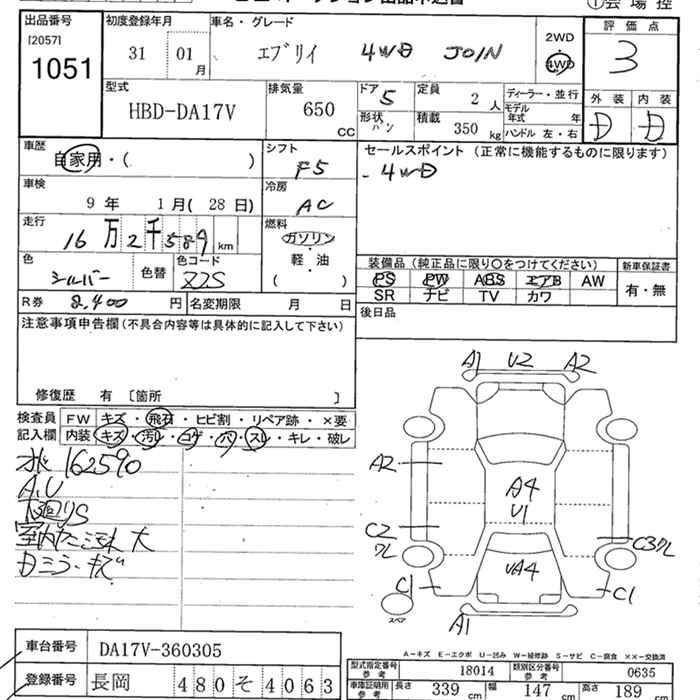 出品番号
[2057]
1051
初度登録年月
31 01月
車名・グレード
エブリイ 4WD JOIN
2WD
4WD
評価点
3
型式
HBD-DA17V
排気量
650 CC
ドア 5
形状 バン
定員 2 人
積載 350 kg
ディーラー・並行
モデル年式 年
ハンドル 左・右
外装 内装
D D
車歴
自家用・( )
シフト
F5
セールスポイント (正常に機能するものに限ります)
- 4WD
車検
9年 1月(28日)
冷房
AC
走行
16万2千589 km
燃料
ガソリン
軽・油
( )
色
シルバー
色替
色コード
Z2S
装備品 (純正品に限り○をつけてください)
新車保証書
PS PW ABS エアB AW
SR ナビ TV カワ
有・無
R券 8,400円
名変期限 月 日
後日品
注意事項申告欄(不具合内容等は具体的に記入して下さい)
修復歴 有 〔箇所 〕
検査員記入欄
FW キズ・飛石・ヒビ割・リペア跡・×要
内装 キズ・汚れ・コゲ・穴・スレ・キレ・破レ
162590
A,U
下回りS
A1 U2 A2
A2
A4
U1
C2
クレ
C3クレ
C1
UA4
C1
スペア
A1
A-キズ E-エクボ U-凹み W-補修跡 S-サビ C-腐食 ××-交換済
車台番号 DA17V-360305
登録番号 長岡 480そ4063
型式指定番号 参考 18014
類別区分番号 参考 0635
車庫証明用 参考 長さ 339 cm 幅 147 cm 高さ 189 cm